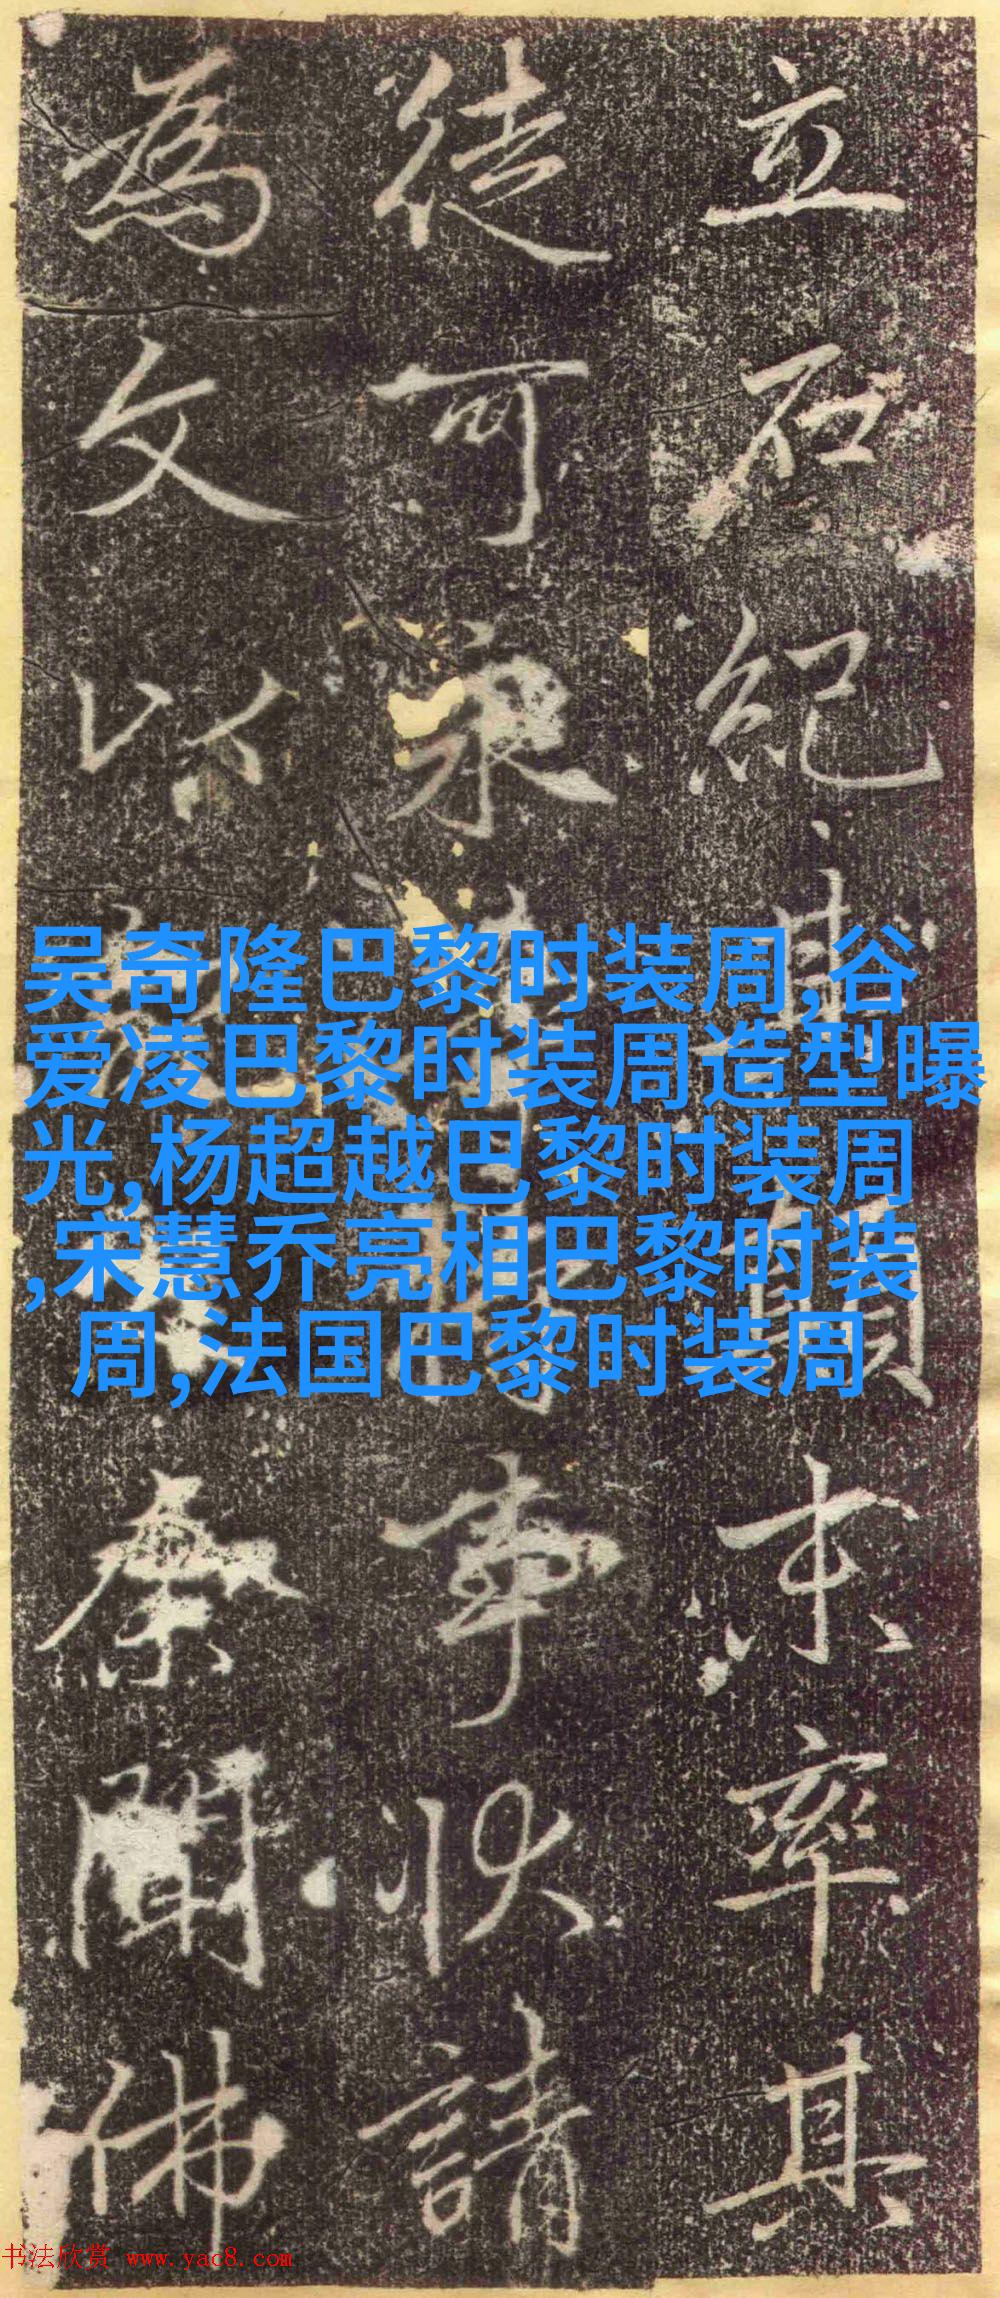 立石紀其末率其
徒可永事狀請
為文以余聞佛
吴奇隆巴黎时装周,谷
爱凌巴黎时装周造型曝
光,杨超越巴黎时装周
,宋慧乔亮相巴黎时装
周,法国巴黎时装周
书法欣赏 www.yac8.com